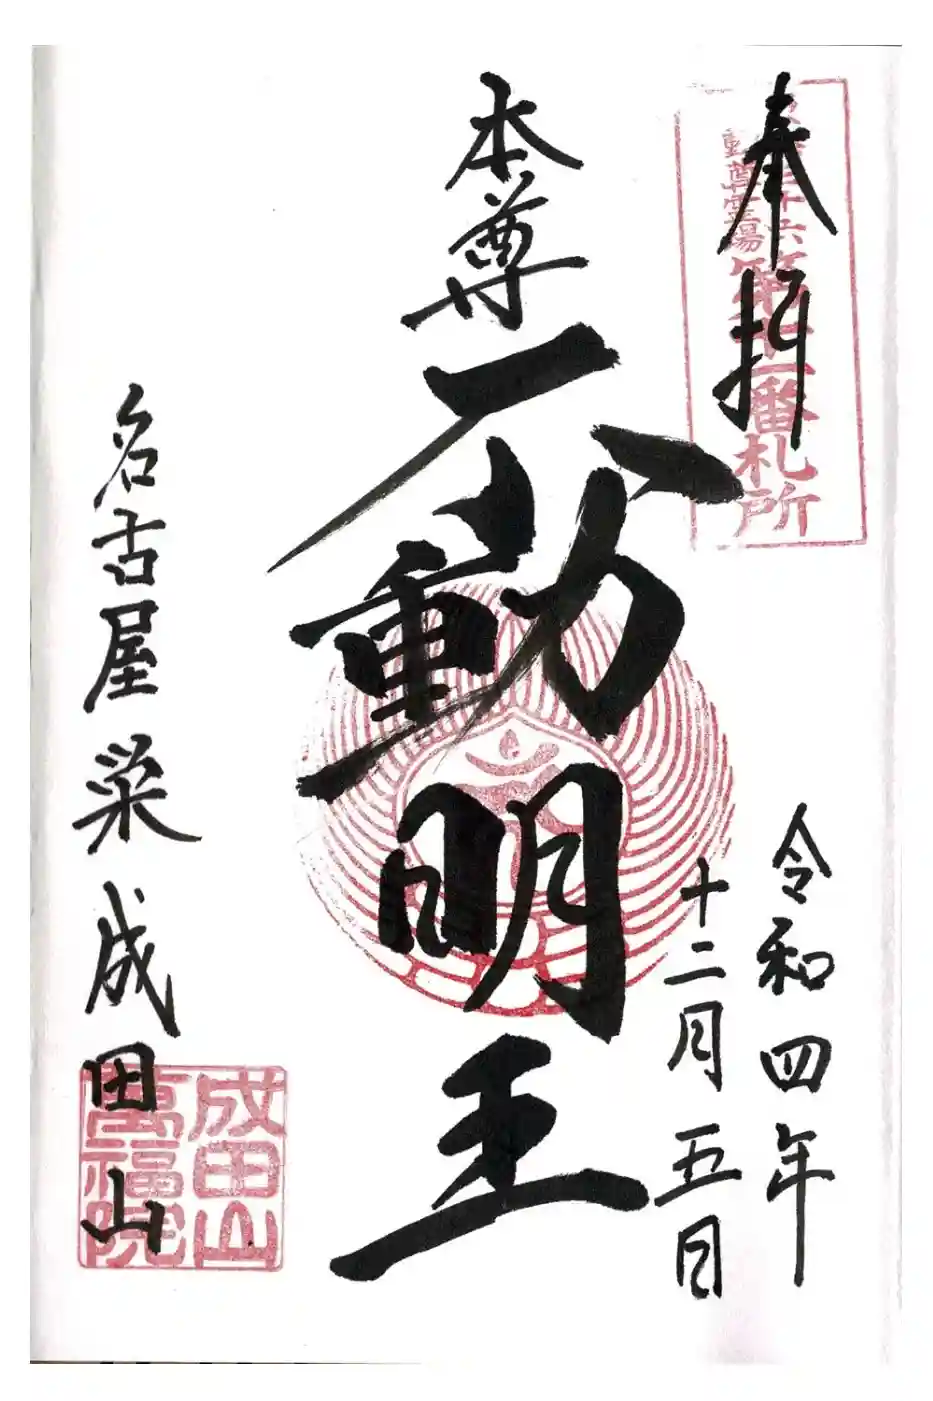 奉拝
三十六
動尊霊場
第十一番札所
令和四年
十二月五日
本尊
不動明王
名古屋栄成田山
成田山
萬福院